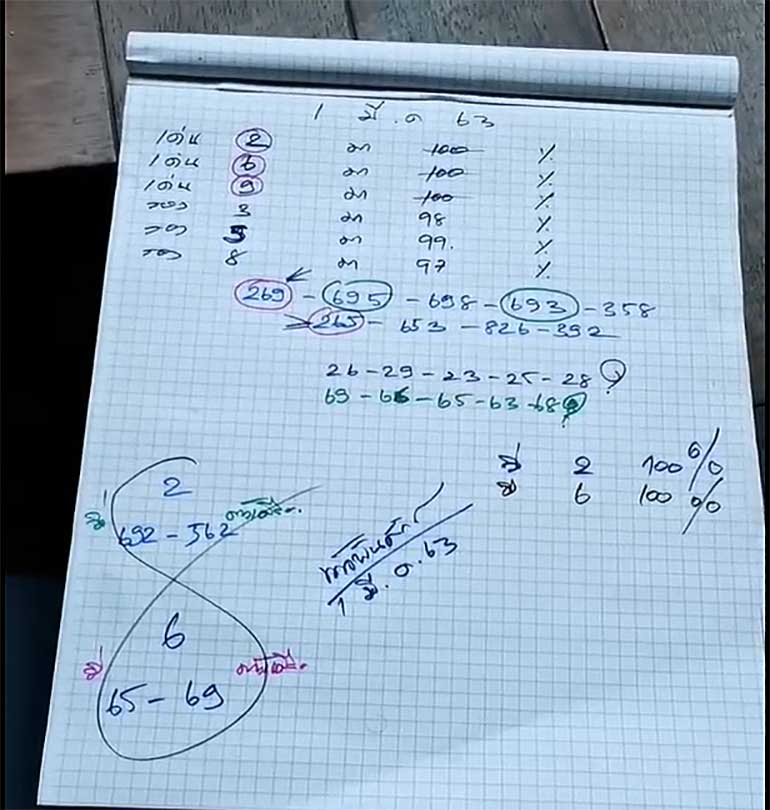 1 มี.ค 63
เด่น 2 มา 100 %
เด่น 6 มา 100 %
เด่น 9 มา 100 %
รอง 3 มา 98 %
รอง 5 มา 99. %
รอง 8 มา 97 %
269 - 695 - 698 - 693 - 358
265 - 653 - 826 - 392
26 - 29 - 23 - 25 - 28
69 - 66 - 65 - 63 - 68
2 100 %
6 100 %
2
692 - 562
1 มี.ค.63
6
65 - 69